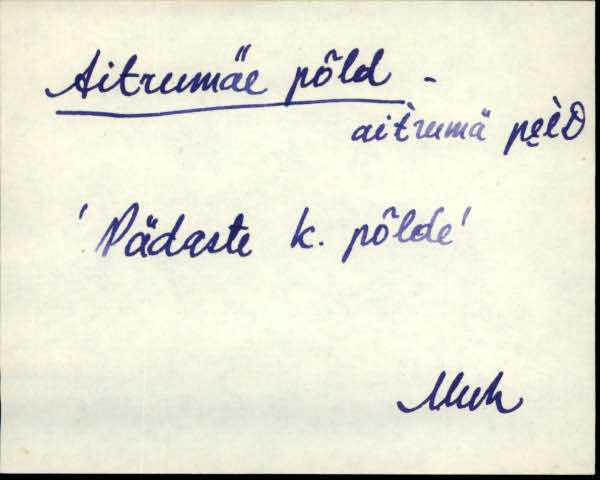 Aitrumäe põld -
aìtrumä pe̮èD
'Pädaste k. põlde'
Muh